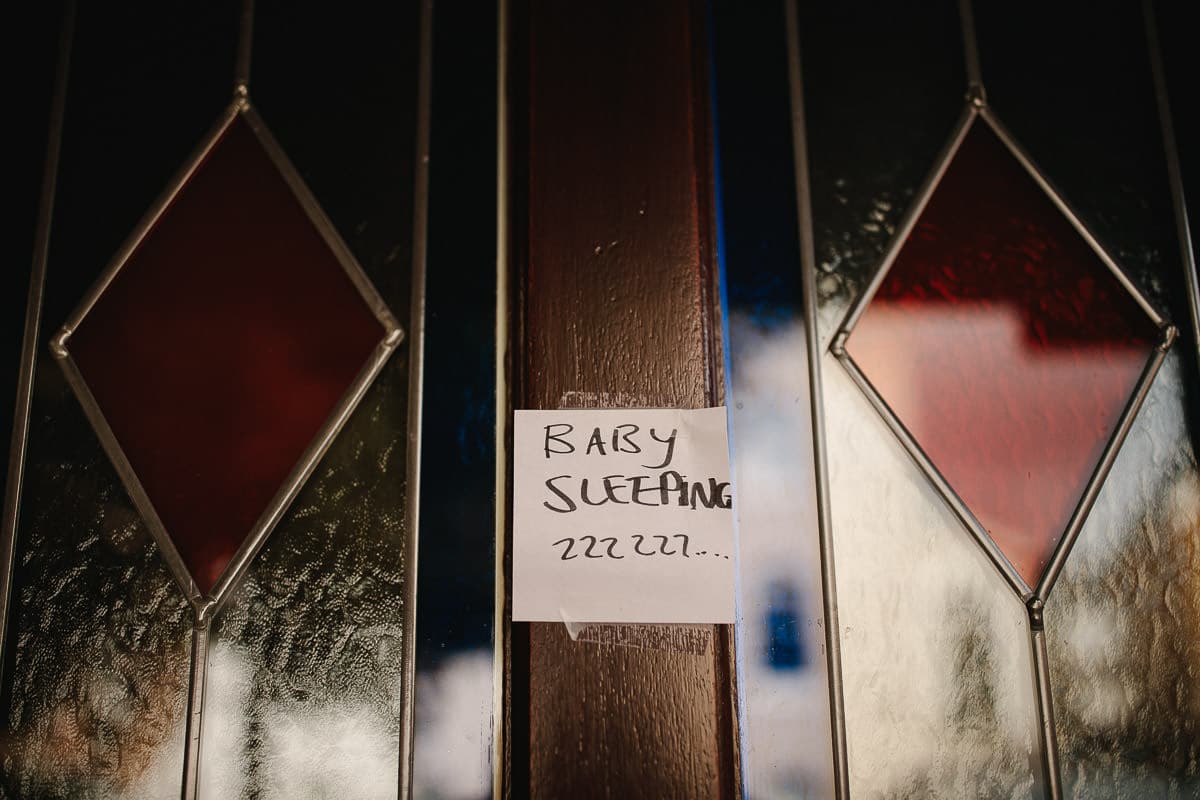 BABY
SLEEPING
zzzzzz....